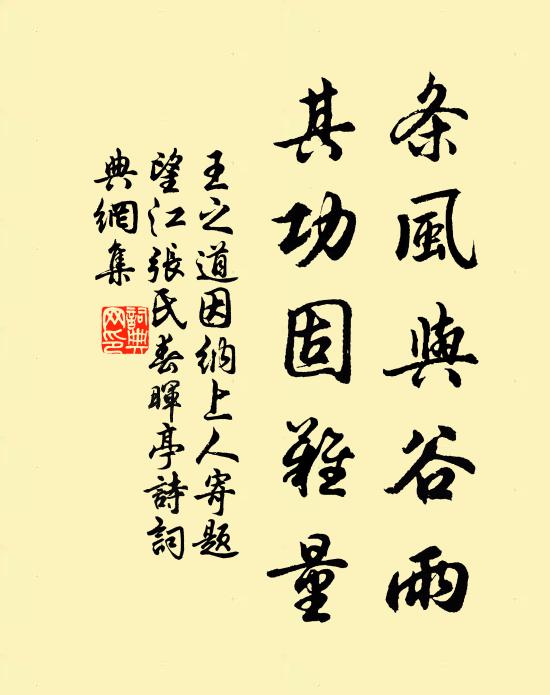 条風與谷雨
其功固難量
王之道因納上人寄题
望江張氏春暉亭詩詞
典網集
詞典
网印